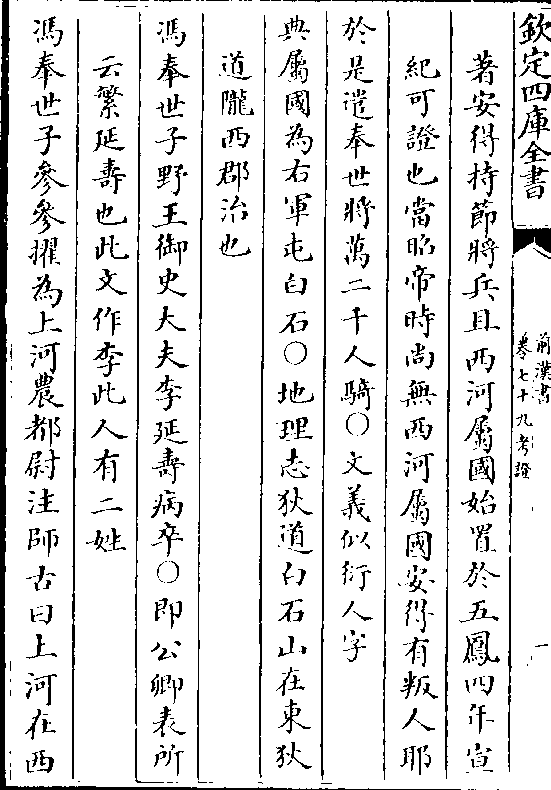 欽定四庫全書
前漢書
卷七十九考證
一
著安得持節將兵且西河屬國始置於五鳳四年宣
紀可證也當昭帝時尚無西河屬國安得有叛人耶
於是遣奉世將萬二千人騎○文義似衍人字
典屬國為右軍屯白石○地理志狄道白石山在東狄
道隴西郡治也
馮奉世子野王御史大夫李延壽病卒○即公卿表所
云繁延壽也此文作李此人有二姓
馮奉世子參參擢為上河農都尉注師古曰上河在西